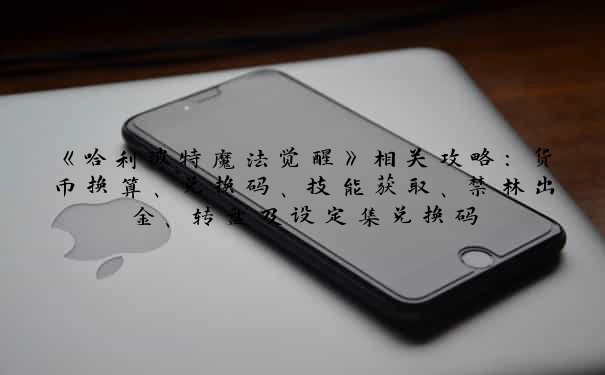 《哈利波特魔法觉醒》相关攻略：货
币换算、兑换码、技能获取、禁林出
金、转盘及设定集兑换码